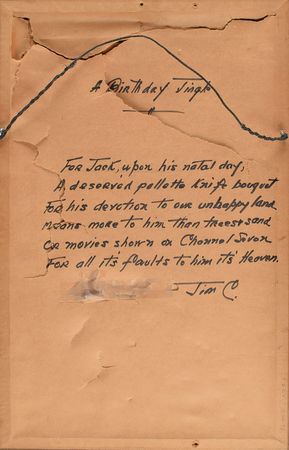 A Birthday Jingle
For Jack, upon his natal day,
A deserved pallette knife bouquet
For his devotion to our unhappy land
Means more to him than trees & sand
Or movies shown on Channel Seven
For all it's faults to him it's Heaven.
Jim C.